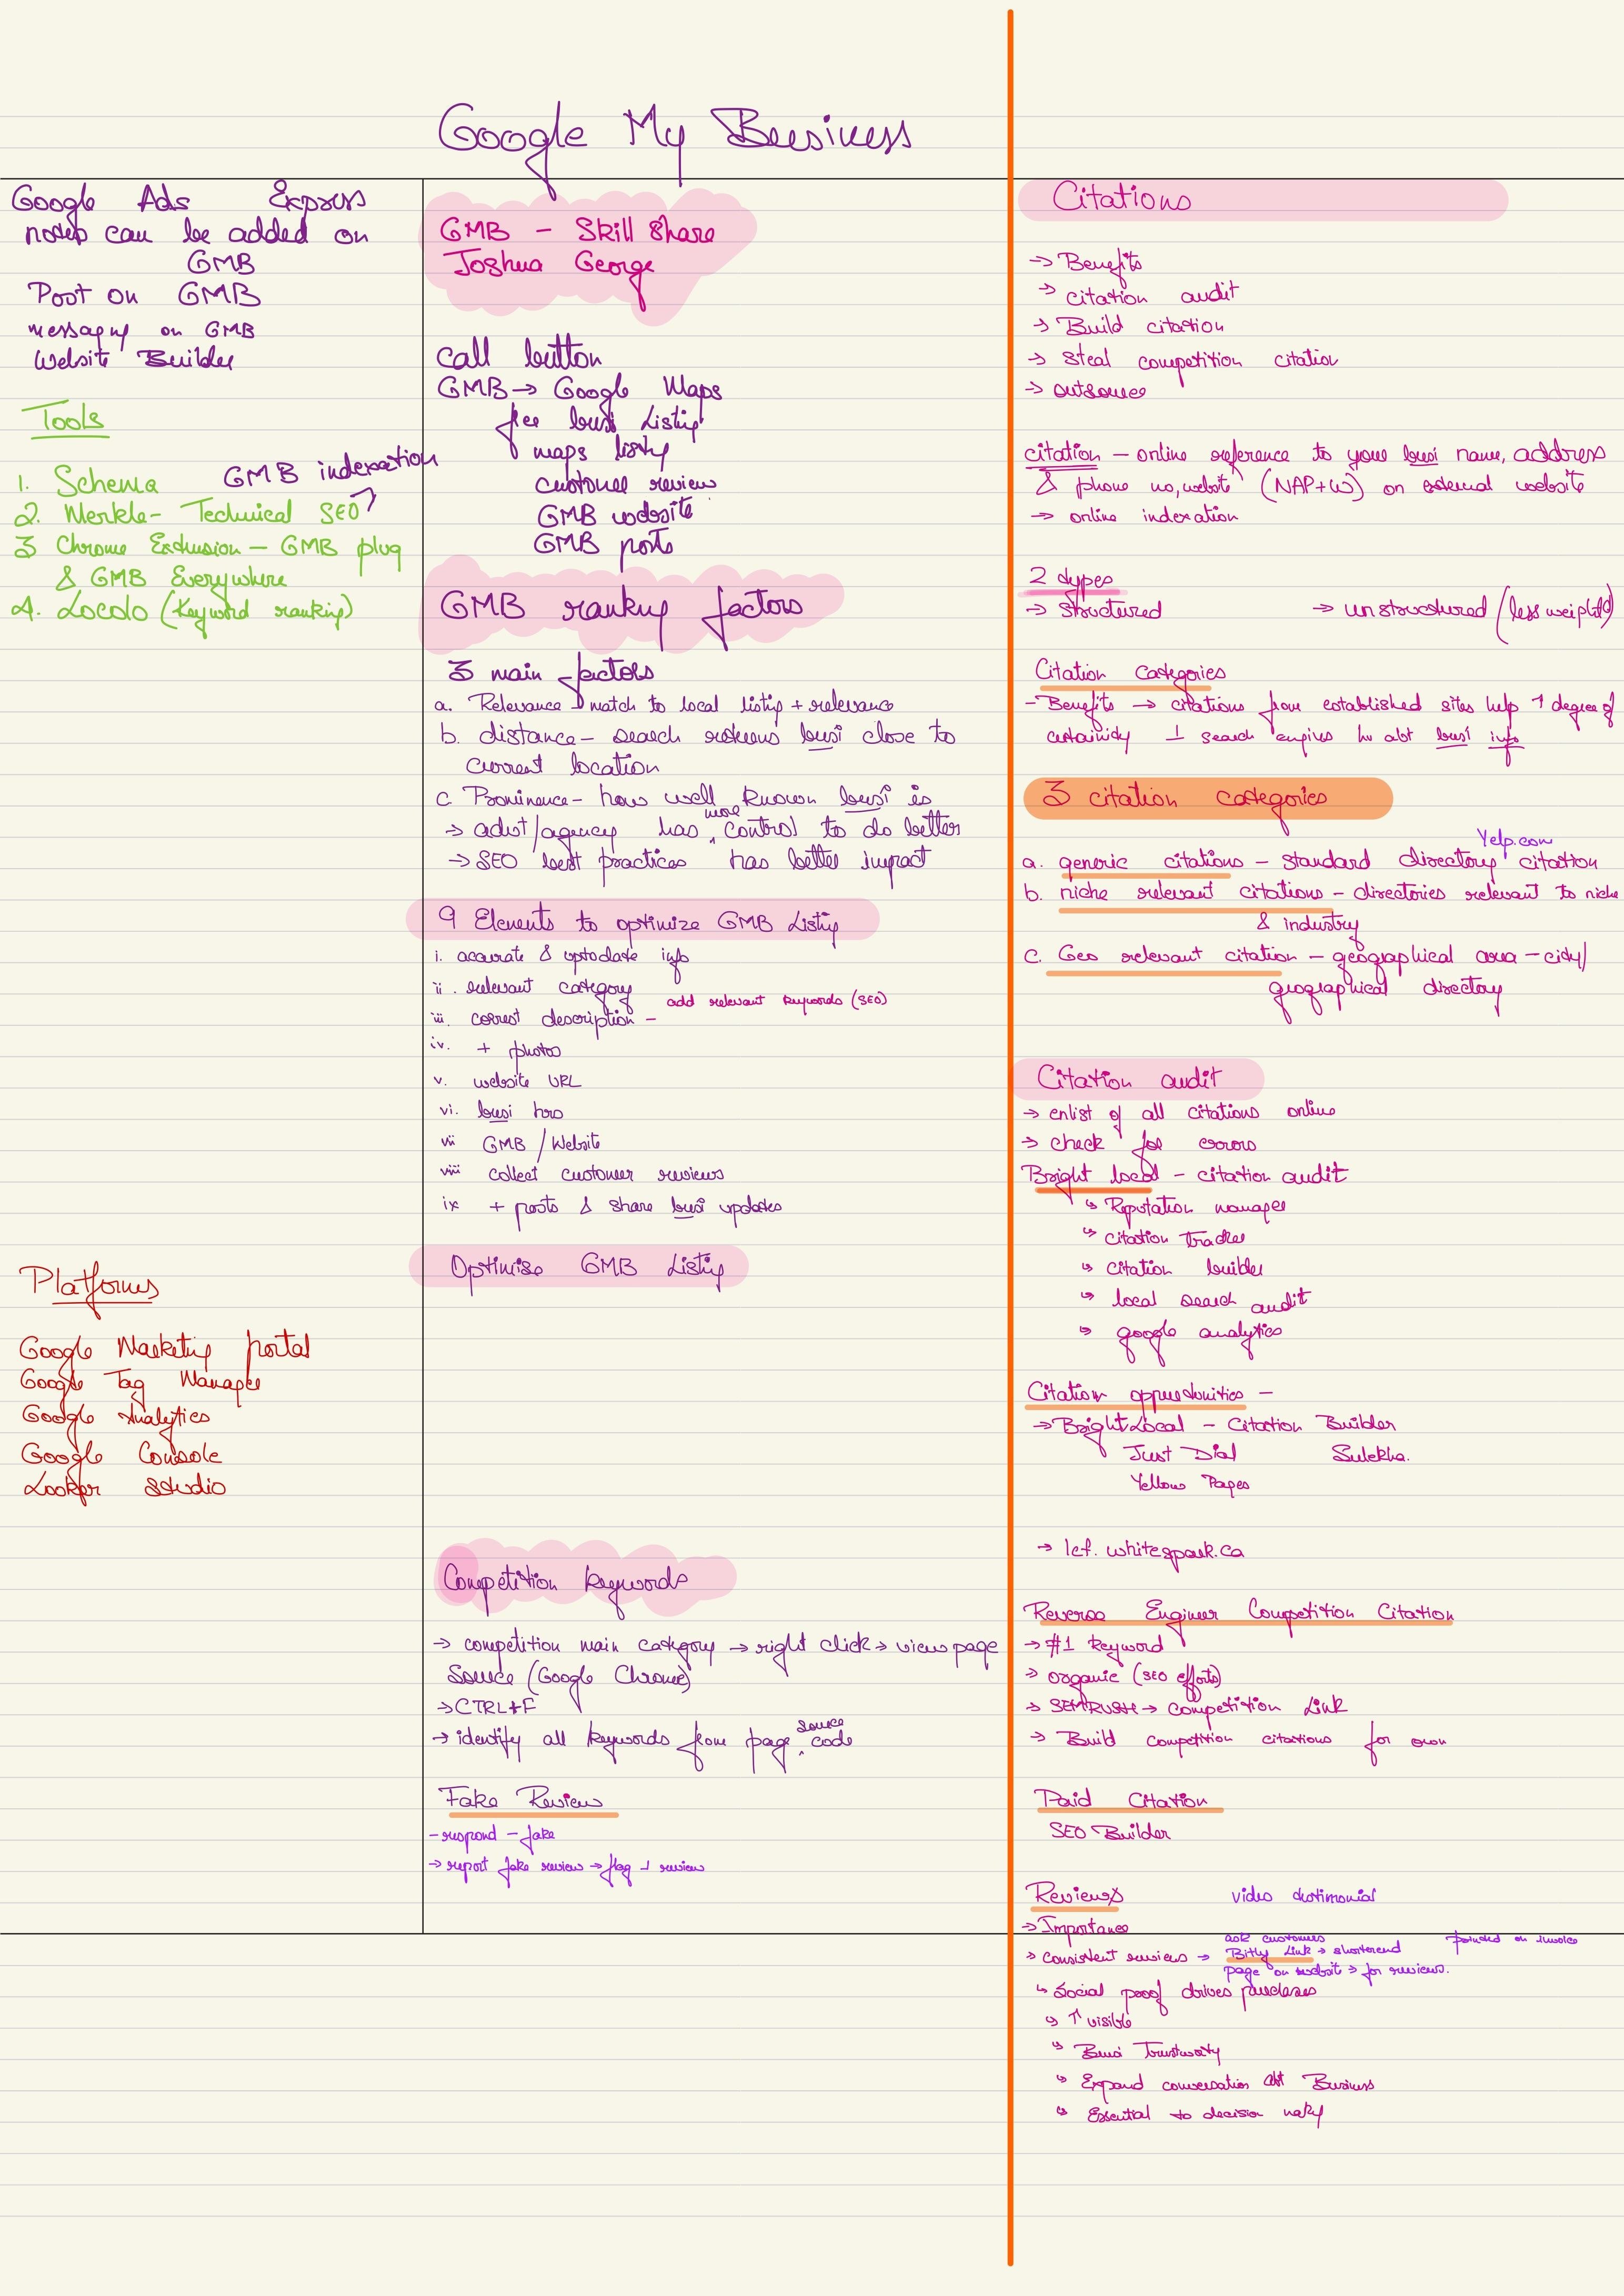 Google My Business
Google Ads Express
notes can be added on
GMB
Post on GMB
messaging on GMB
Website Builder
Tools
GMB indexation
1. Schema
2. Merkle- Technical SEO
3 Chrome Extension - GMB plug
& GMB Everywhere
4. Localo (Keyword ranking)
Platforms
Google Marketing portal
Google Tag Manager
Google Analytics
Google Console
Looker Studio
GMB - Skill Share
Joshua George
call button
GMB → Google Maps
free busi Listing
maps listing
customer review
GMB website
GMB posts
GMB ranking factors
3 main factors
a. Relevance - match to local listing + relevance
b. distance - search returns busi close to
current location
c Prominence - how well known busi is
more
→ adist/agency has ^ control to do better
→ SEO best practices has better impact
9 Elements to optimize GMB Listing
i. accurate & uptodate info
ii. relevant category
add relevant keywords (SEO)
iii. correct description -
iv. + photos
v. website URL
vi. busi hrs
vii GMB / Website
viii collect customer reviews
ix + posts & share busi updates
Optimise GMB Listing
Competition keywords
→ competition main category → right click → view page
Source (Google Chrome)
→ CTRL+F
source
→ identify all keywords from page ^ code
Fake Review
- respond - fake
→ report fake review → flag ⊥ review
Citations
→ Benefits
→ citation audit
→ Build citation
→ Steal competition citation
→ outsource
citation - online reference to your busi name, address
& phone no, website (NAP+W) on external website
→ online indexation
2 types
→ structured → unstructured (less weight)
Citation categories
- Benefits → citations from established sites help ↑ degree of
certainity ⊥ search engines hv abt busi info
3 citation categories
Yelp.com
a. generic citations - standard directory citation
b. niche relevant citations - directories relevant to niche
& industry
c. Geo relevant citation - geographical area - city/
geographical directory
Citation audit
→ enlist of all citations online
→ check for errors
Bright local - citation audit
↳ Reputation manager
↳ citation tracker
↳ citation builder
↳ local search audit
↳ google analytics
Citation opportunities -
→ BrightLocal - Citation Builder
Just Dial Sulekha.
Yellow Pages
→ lcf.whitespark.ca
Reverse Engineer Competition Citation
→ #1 keyword
→ organic (SEO efforts)
→ SEMRUSH → competition Link
→ Build competition citations for own
Paid Citation
SEO Builder
Reviews video testimonial
→ Importance
ask customers printed on invoice
→ consistent reviews → Bitly Link → shortened
page on website → for reviews.
↳ Social proof drives purchases
↳ ↑ visible
↳ Busi Trustworty
↳ Expand conversation abt Business
↳ Essential to decision making